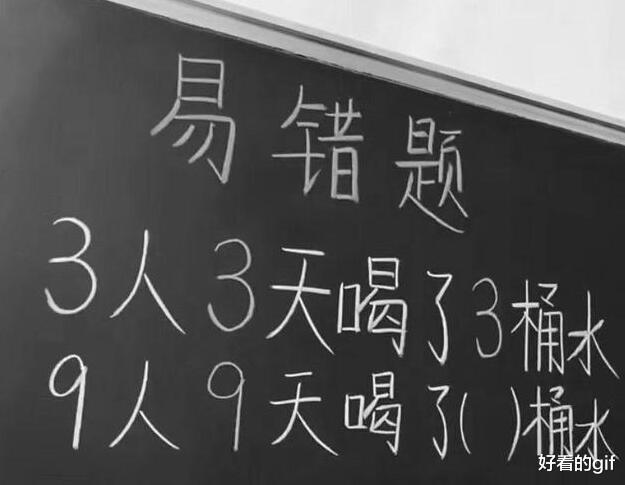 易错题
3人3天喝了3桶水
9人9天喝了( )桶水
好看的gif